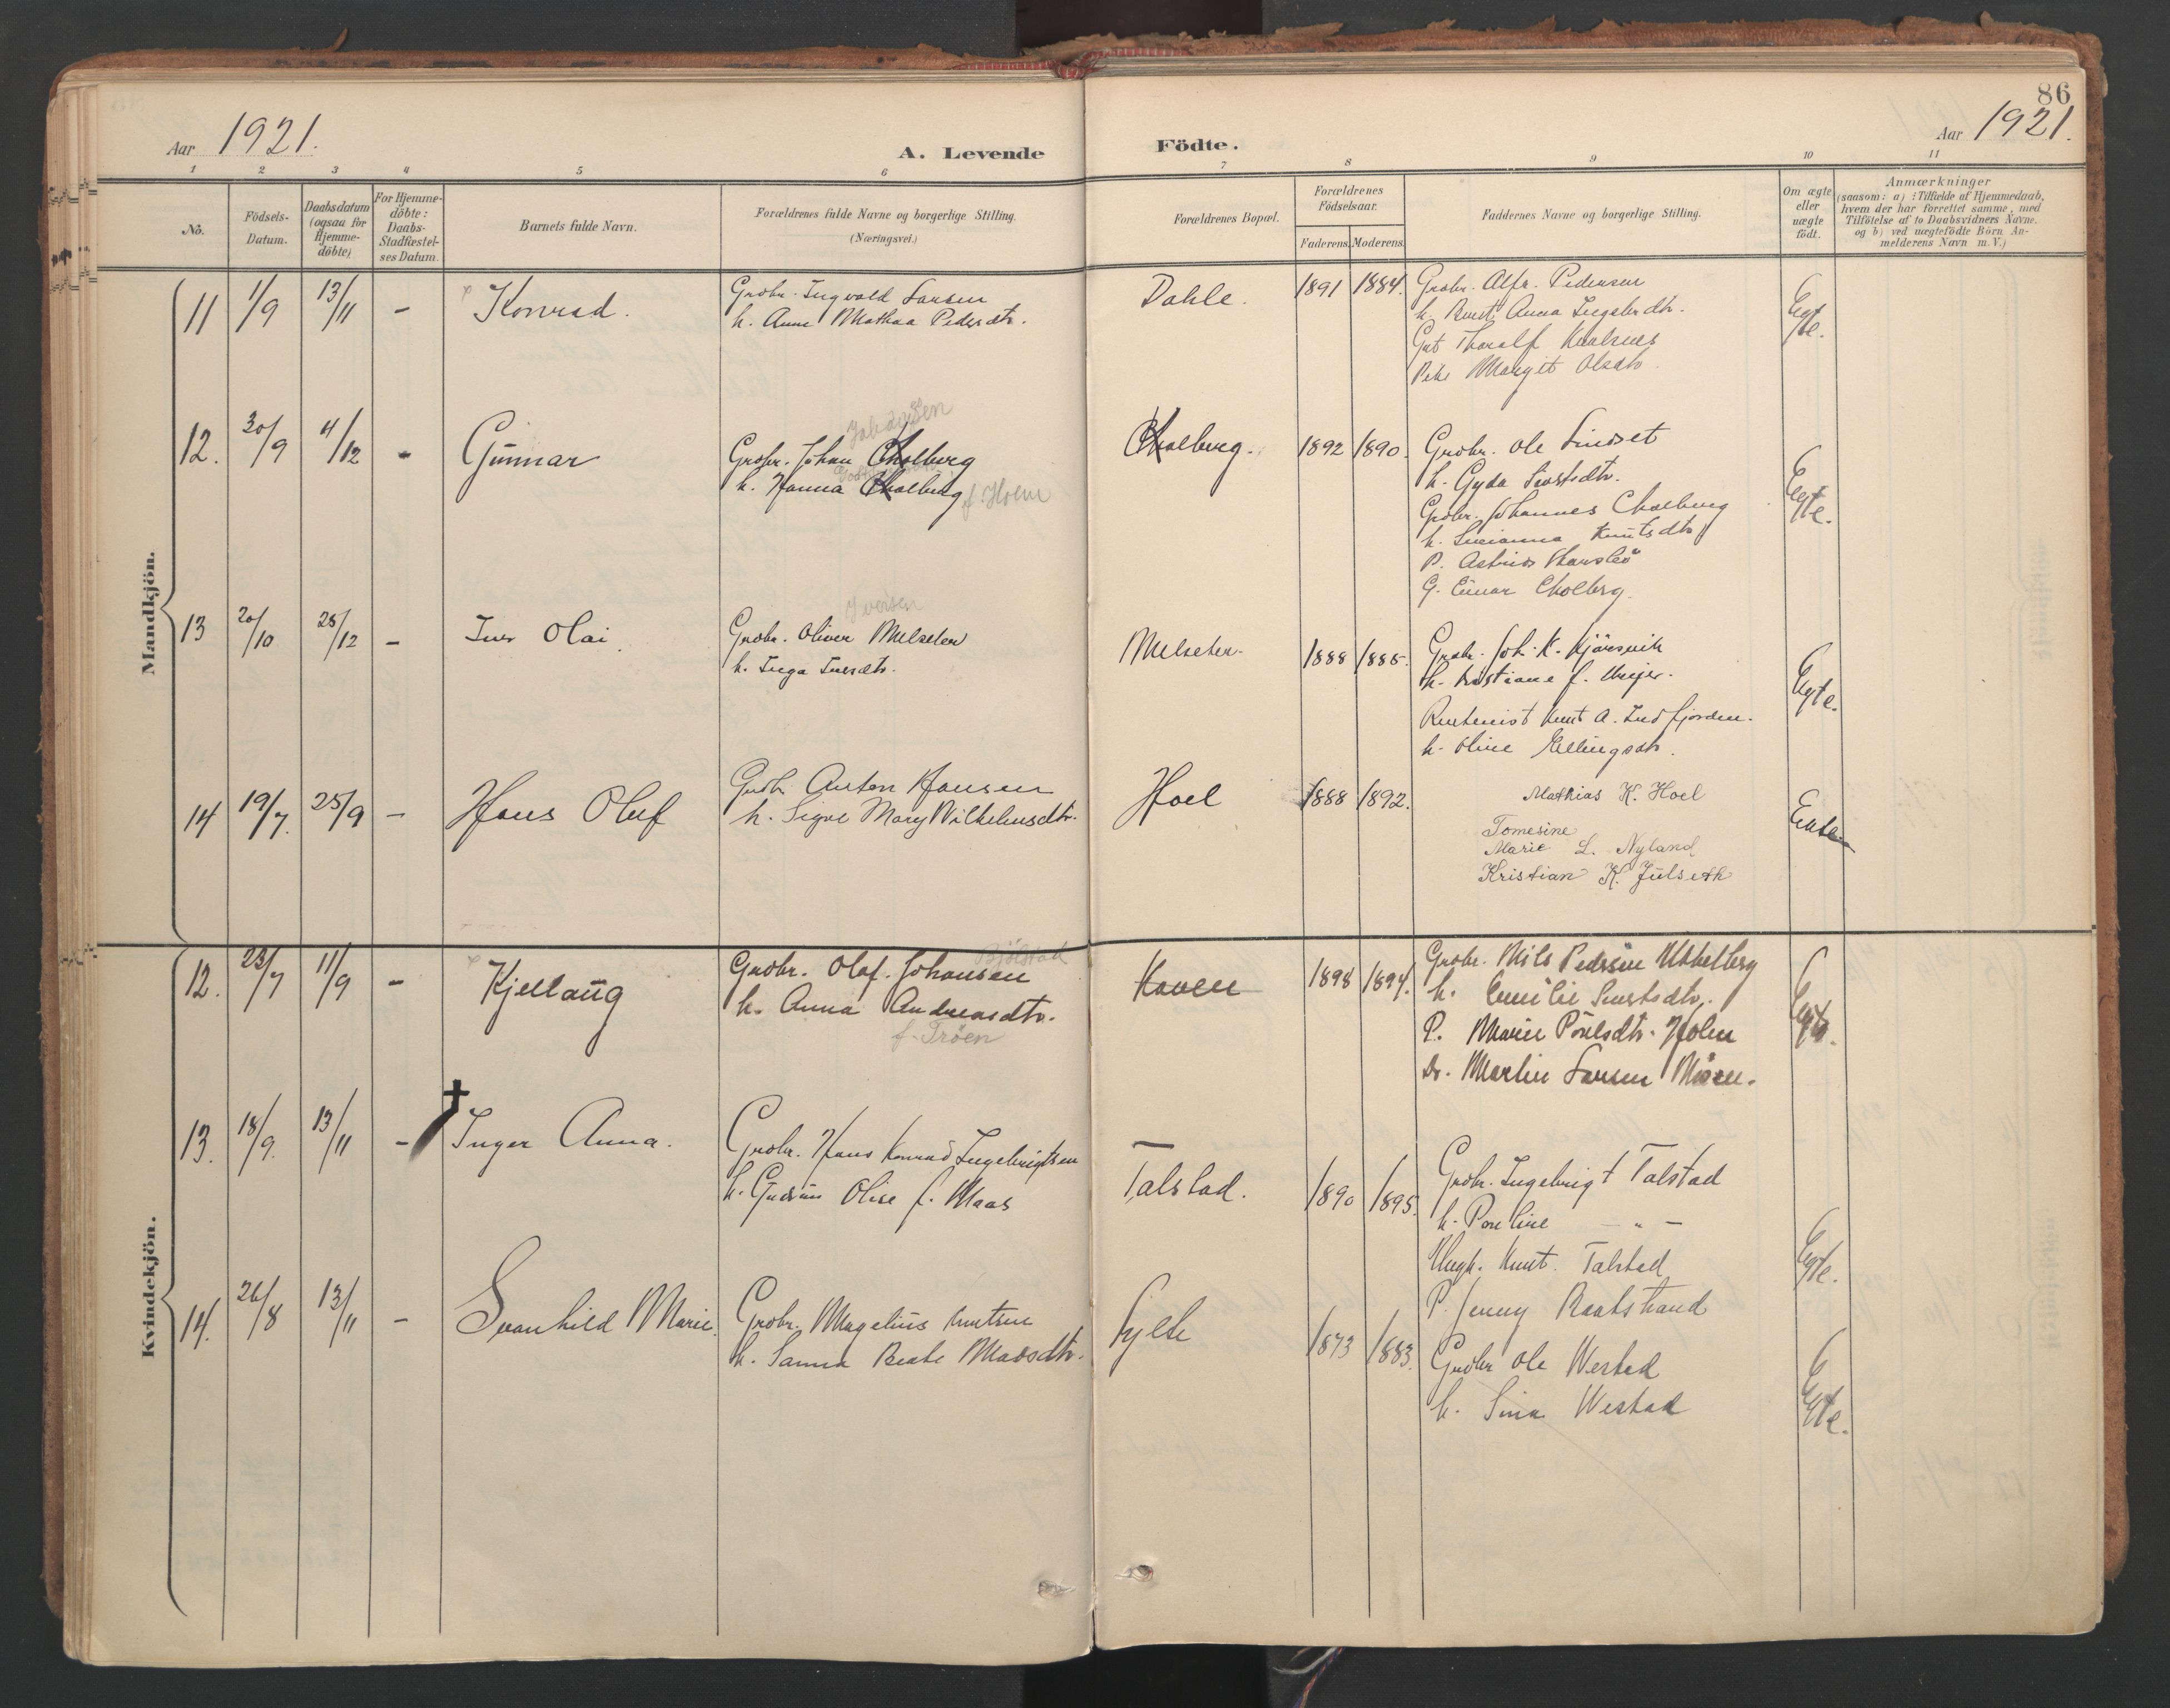 86
Aar 1921.
A. Levende Födte.
Aar 1921.
1 2 3 4 5 6 7 8 9 10 11
No.
Födsels-Datum.
Daabsdatum (ogsaa for Hjemme-döbte)
For Hjemme-döbte: Daabs-Stadfæstel-ses Datum.
Barnets fulde Navn.
Forældrenes fulde Navne og borgerlige Stilling. (Næringsvei.)
Forældrenes Bopæl.
Forældrenes Födselsaar.
Faderens. Moderens.
Faddernes Navne og borgerlige Stilling.
Om ægte eller uægte födt.
Anmærkninger
(saasom: a) i Tilfælde af Hjemmedaab,
hvem der har forrettet samme, med
Tilföielse af to Daabsvidners Navne.
og b) ved uægtefödte Börn An-
melderens Navn m. V.)
Mandkjön.
11 1/9 13/11 - Konrad.
Grobr. Ingvald Larsen
h. Anne Mathea Pedersdtr.
Dahle. 1891 1884.
Grobr. Alfr. Pedersen
h. Berit Anna Ingebrdtr.
Gut Tharalf Knutsen
Pike Margit Olsdtr.
Egte.
12. 30/9 4/12 - Gunnar
Johansen
Grobr. Johan Cholberg
h. Hanna Cholberg f. Holm
Cholberg. 1892 1890.
Grobr. Ole Lindset
h. Gyda Sivertsdtr.
Grobr. Johannes Cholberg
h. Knutsdtr
P. Astrid
G. Einar Cholberg.
Egte.
13 20/10 25/12 - Iver Olai.
Iversen
Grobr. Oliver Melseter
h. Inga Iversdtr.
Melseter. 1888 1885.
Grobr. Joh. K. Kjörsvik
h. Kristiane f.
Knut A. Indfjorden.
h. Oline Ellingsdtr.
Egte.
14 19/7. 25/9 - Hans Oluf
Grobr. Anton Hansen
h. Signe Mary Vilhelmsdtr.
Hoel 1888 1892.
Mathias K. Hoel
Tomesine
Marie L. Nyland
Kristian K. Julseth
Ekte
Kvindekjön.
12. 23/7 11/9 - Kjellaug
Bjölstad
Grobr. Olaf Johansen
h. Anna Andreasdtr.
f. Tröen
Haven 1898 1894.
Grobr. Nils Pedersen Ukkelberg
h. Emilie Sivertsdtr.
P. Marie Pouelsdtr. Holm
Dr. Martin Larsen Moen.
Egte.
13. 18/9. 13/11 - Inger Anna.
Grobr. Hans Konrad Ingebrigtsen
h. Gudrun Olise f. Maas
Talstad. 1890 1895.
Grobr. Ingebrigt Talstad
h. Pauline - " -
Ungk. Knut Talstad
P. Jenny Raastrand
Egte.
14. 26/8 13/11 - Svanhild Marie.
Grobr. Magelius Knutsen
h. Sanna Beate Madsdtr.
Sylte 1873 1883.
Grobr Ole Westad
h. Sina Westad
Egte.